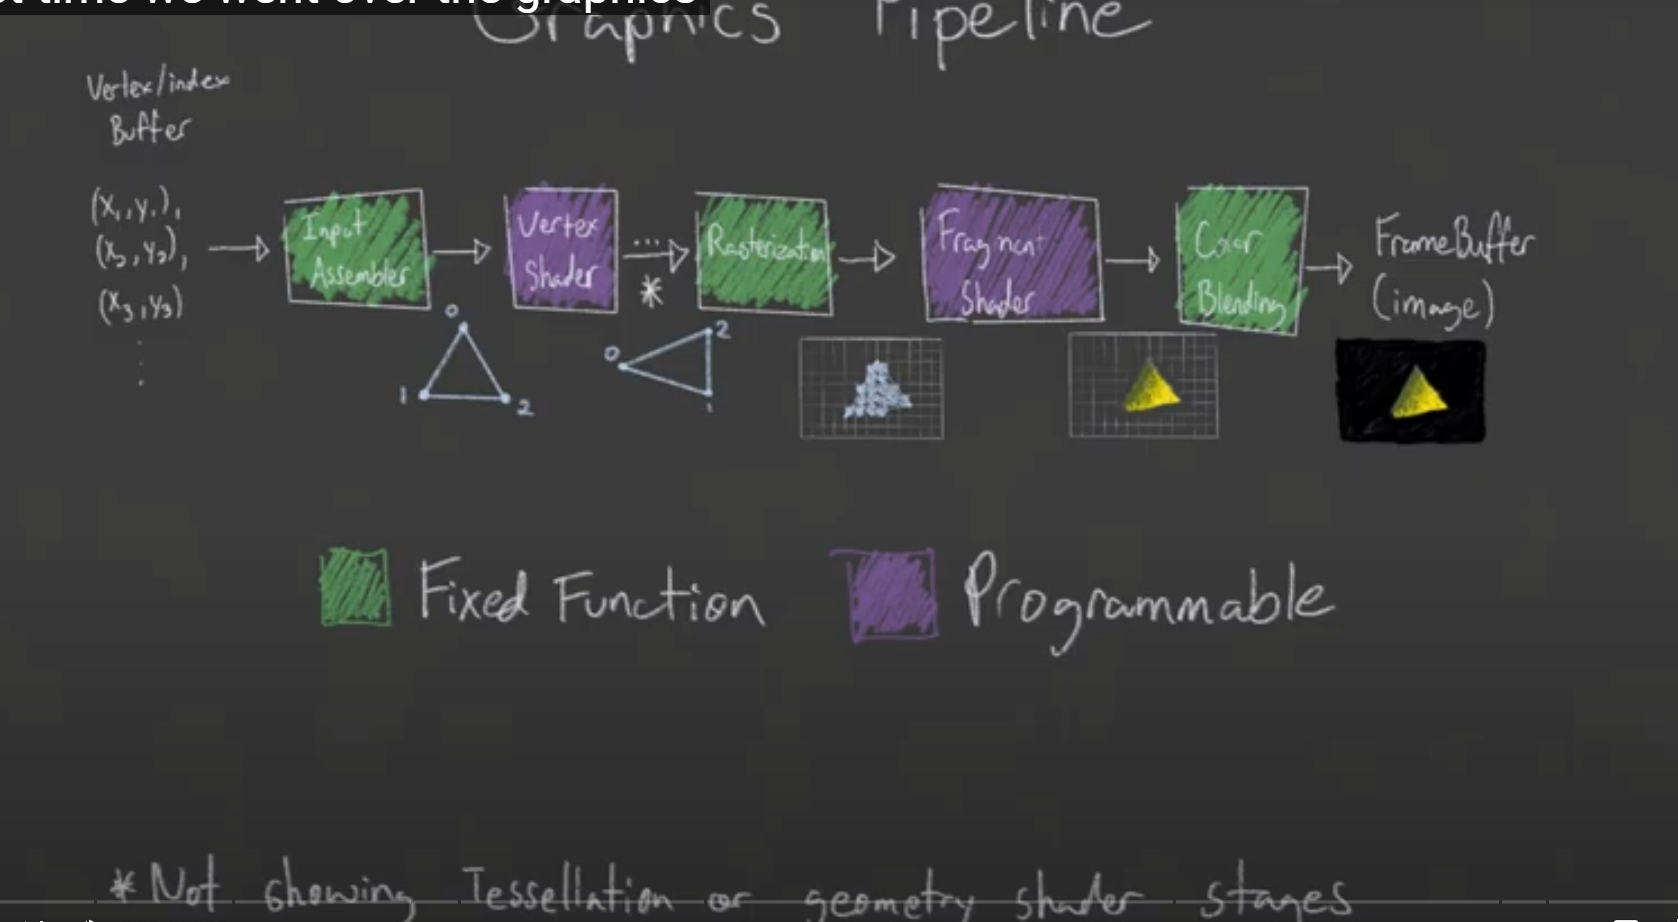 t time we went over the graphics
Graphics Pipeline
Vertex/index
Buffer
(x₁,y₁),
(x₂,y₂),
(x₃,y₃)
Input
Assembler
Vertex
Shader
...
*
Rasterization
Fragment
Shader
Color
Blending
FrameBuffer
(image)
0
1
2
0
2
1
Fixed Function
Programmable
* Not showing Tessellation or geometry shader stages